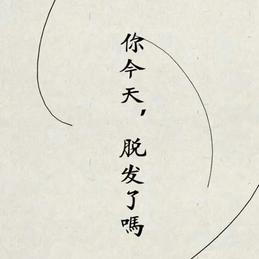 你今天，脱发了嗎